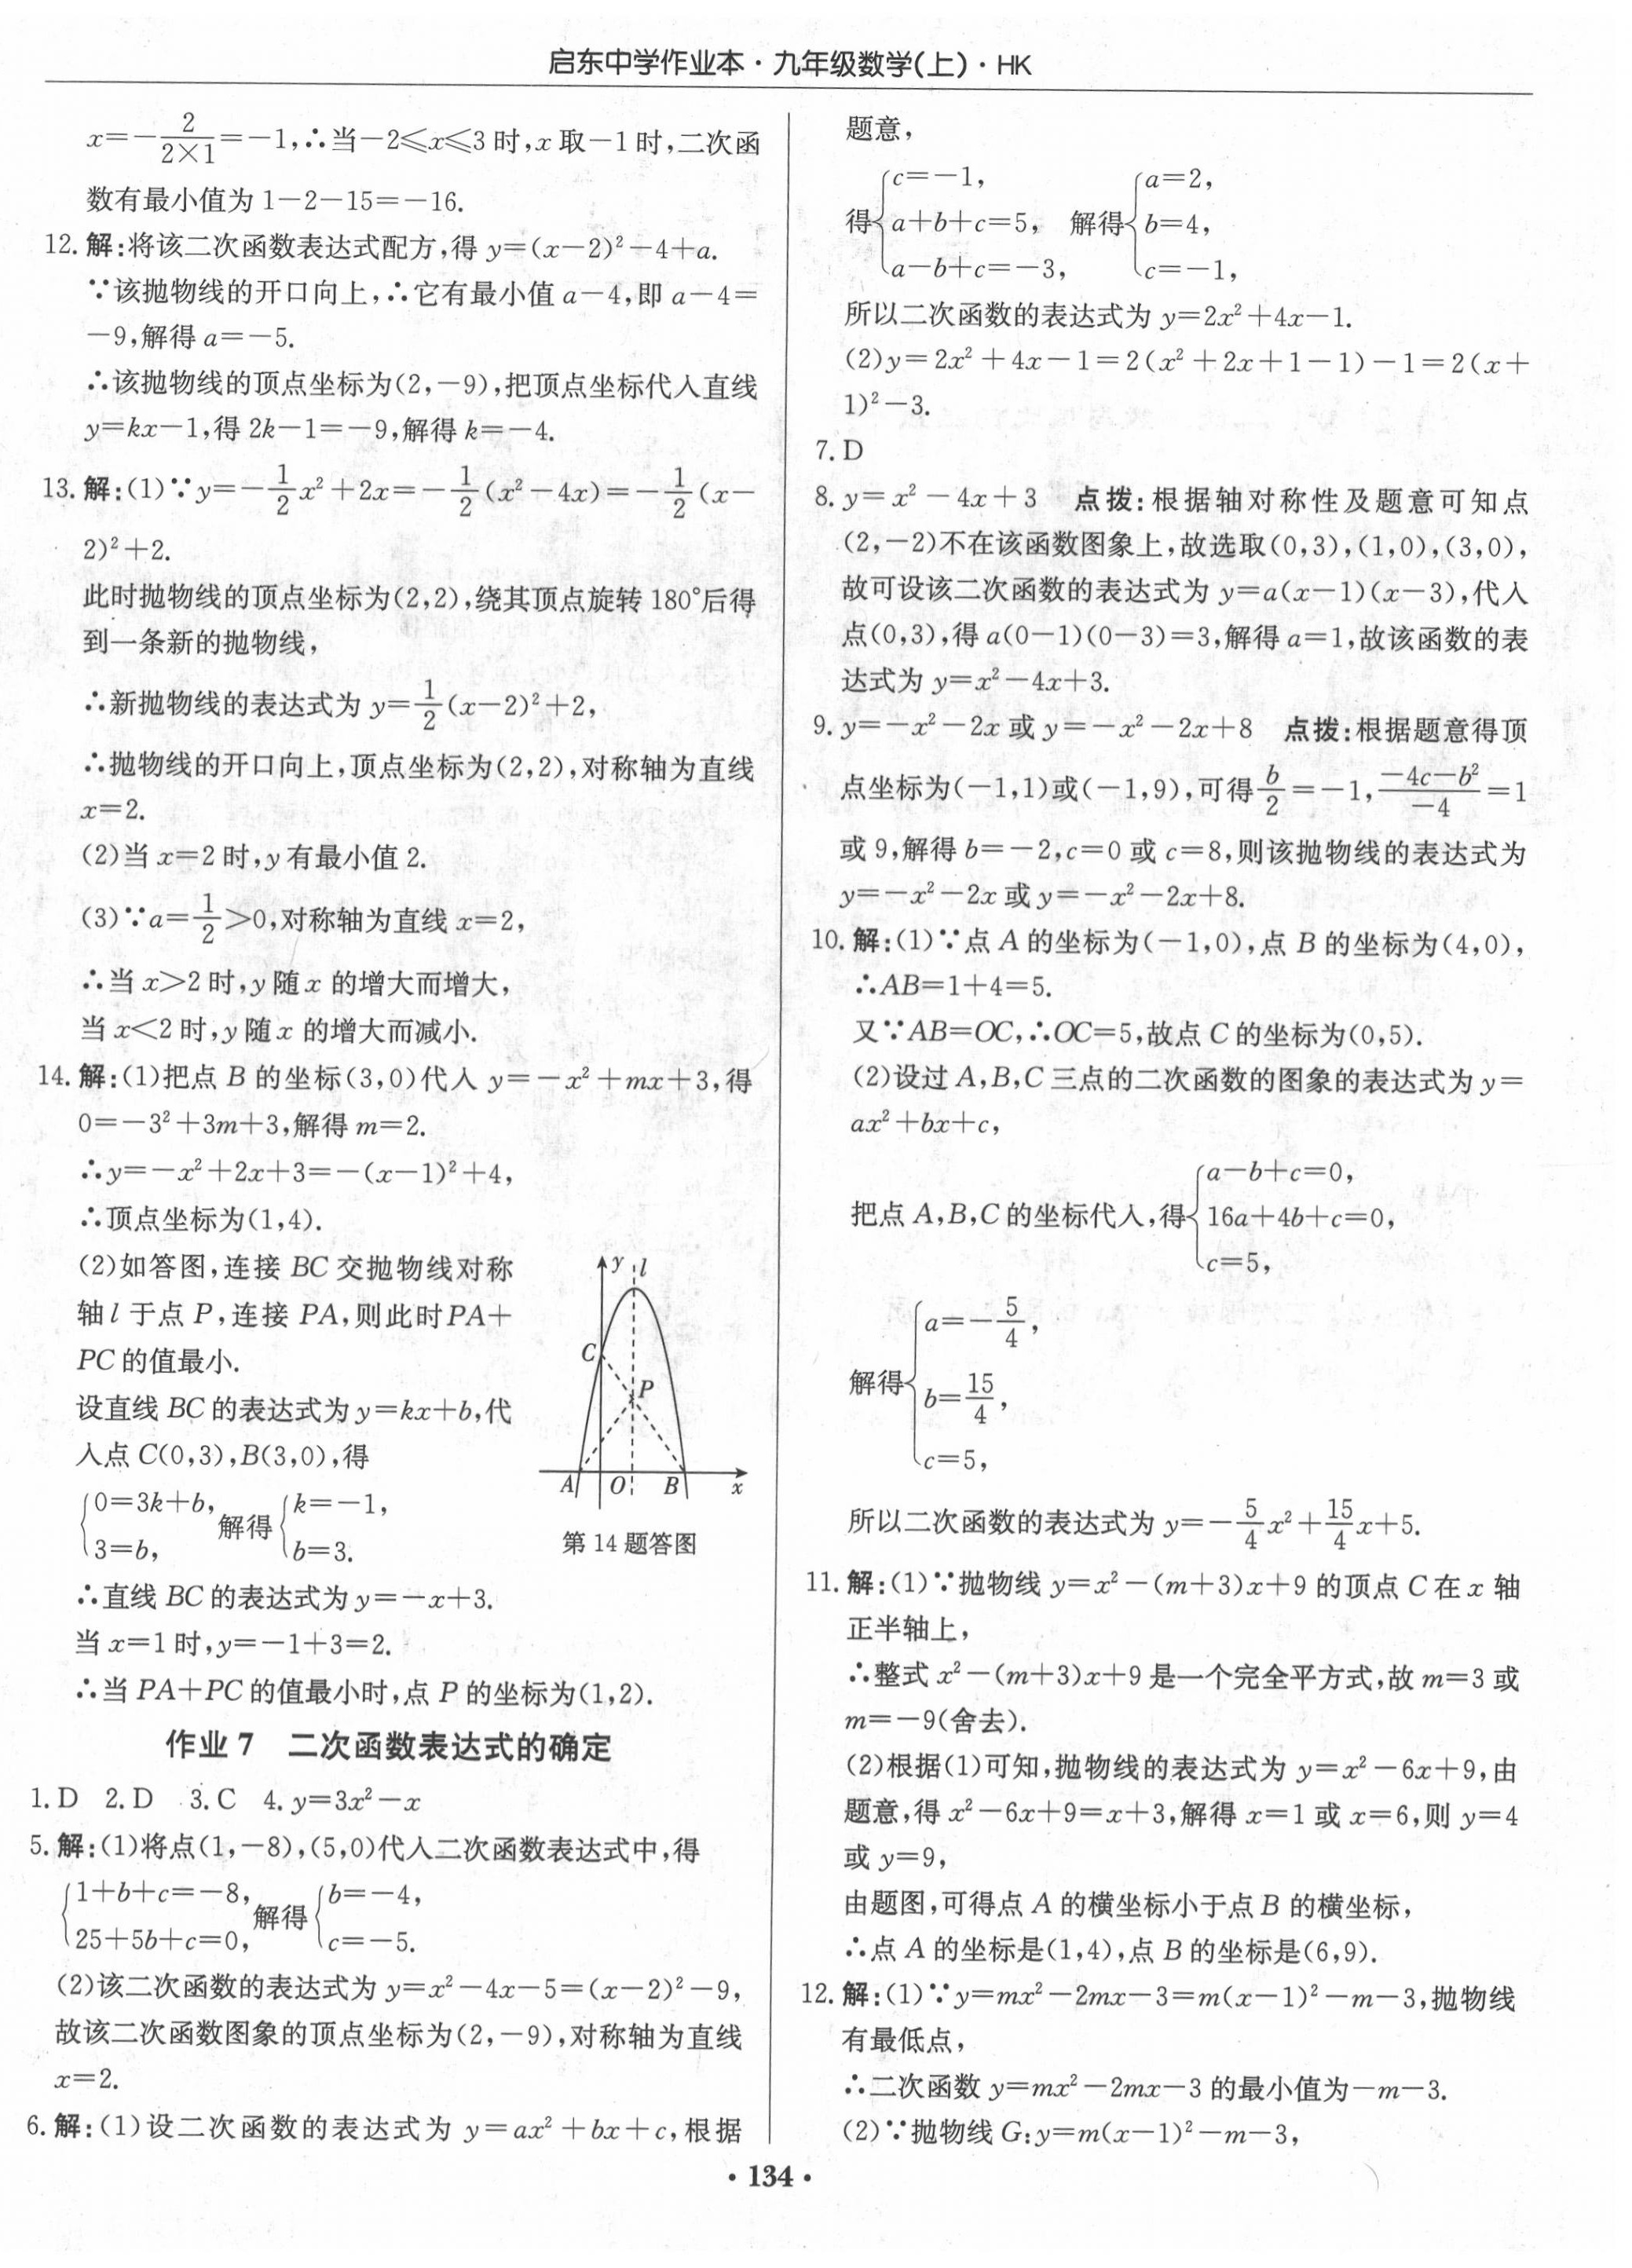 启东中学作业本·九年级数学(上)·HK
x=-\frac{2}{2×1}=-1,∴当-2≤x≤3时,x取-1时,二次函
数有最小值为1-2-15=-16.
12.解:将该二次函数表达式配方,得y=(x-2)²-4+a.
∵该抛物线的开口向上,∴它有最小值a-4,即a-4=
-9,解得a=-5.
∴该抛物线的顶点坐标为(2,-9),把顶点坐标代入直线
y=kx-1,得2k-1=-9,解得k=-4.
13.解:(1)∵y=-\frac{1}{2}x²+2x=-\frac{1}{2}(x²-4x)=-\frac{1}{2}(x-
2)²+2.
此时抛物线的顶点坐标为(2,2),绕其顶点旋转180°后得
到一条新的抛物线,
∴新抛物线的表达式为y=\frac{1}{2}(x-2)²+2,
∴抛物线的开口向上,顶点坐标为(2,2),对称轴为直线
x=2.
(2)当x=2时,y有最小值2.
(3)∵a=\frac{1}{2}>0,对称轴为直线x=2,
∴当x>2时,y随x的增大而增大,
当x<2时,y随x的增大而减小.
14.解:(1)把点B的坐标(3,0)代入y=-x²+mx+3,得
0=-3²+3m+3,解得m=2.
∴y=-x²+2x+3=-(x-1)²+4,
∴顶点坐标为(1,4).
(2)如答图,连接BC交抛物线对称
轴l于点P,连接PA,则此时PA+
PC的值最小.
设直线BC的表达式为y=kx+b,代
入点C(0,3),B(3,0),得
{0=3k+b, 3=b, 解得{k=-1, b=3.
y l
C
P
A O B x
第14题答图
∴直线BC的表达式为y=-x+3.
当x=1时,y=-1+3=2.
∴当PA+PC的值最小时,点P的坐标为(1,2).
作业7 二次函数表达式的确定
1.D 2.D 3.C 4.y=3x²-x
5.解:(1)将点(1,-8),(5,0)代入二次函数表达式中,得
{1+b+c=-8, 25+5b+c=0, 解得{b=-4, c=-5.
(2)该二次函数的表达式为y=x²-4x-5=(x-2)²-9,
故该二次函数图象的顶点坐标为(2,-9),对称轴为直线
x=2.
6.解:(1)设二次函数的表达式为y=ax²+bx+c,根据
题意,
得{c=-1, a+b+c=5, a-b+c=-3, 解得{a=2, b=4, c=-1,
所以二次函数的表达式为y=2x²+4x-1.
(2)y=2x²+4x-1=2(x²+2x+1-1)-1=2(x+
1)²-3.
7.D
8.y=x²-4x+3 点拨:根据轴对称性及题意可知点
(2,-2)不在该函数图象上,故选取(0,3),(1,0),(3,0),
故可设该二次函数的表达式为y=a(x-1)(x-3),代入
点(0,3),得a(0-1)(0-3)=3,解得a=1,故该函数的表
达式为y=x²-4x+3.
9.y=-x²-2x或y=-x²-2x+8 点拨:根据题意得顶
点坐标为(-1,1)或(-1,9),可得\frac{b}{2}=-1,\frac{-4c-b²}{-4}=1
或9,解得b=-2,c=0或c=8,则该抛物线的表达式为
y=-x²-2x或y=-x²-2x+8.
10.解:(1)∵点A的坐标为(-1,0),点B的坐标为(4,0),
∴AB=1+4=5.
又∵AB=OC,∴OC=5,故点C的坐标为(0,5).
(2)设过A,B,C三点的二次函数的图象的表达式为y=
ax²+bx+c,
把点A,B,C的坐标代入,得{a-b+c=0, 16a+4b+c=0, c=5,
解得{a=-\frac{5}{4}, b=\frac{15}{4}, c=5,
所以二次函数的表达式为y=-\frac{5}{4}x²+\frac{15}{4}x+5.
11.解:(1)∵抛物线y=x²-(m+3)x+9的顶点C在x轴
正半轴上,
∴整式x²-(m+3)x+9是一个完全平方式,故m=3或
m=-9(舍去).
(2)根据(1)可知,抛物线的表达式为y=x²-6x+9,由
题意,得x²-6x+9=x+3,解得x=1或x=6,则y=4
或y=9,
由题图,可得点A的横坐标小于点B的横坐标,
∴点A的坐标是(1,4),点B的坐标是(6,9).
12.解:(1)∵y=mx²-2mx-3=m(x-1)²-m-3,抛物线
有最低点,
∴二次函数y=mx²-2mx-3的最小值为-m-3.
(2)∵抛物线G:y=m(x-1)²-m-3,
·134·